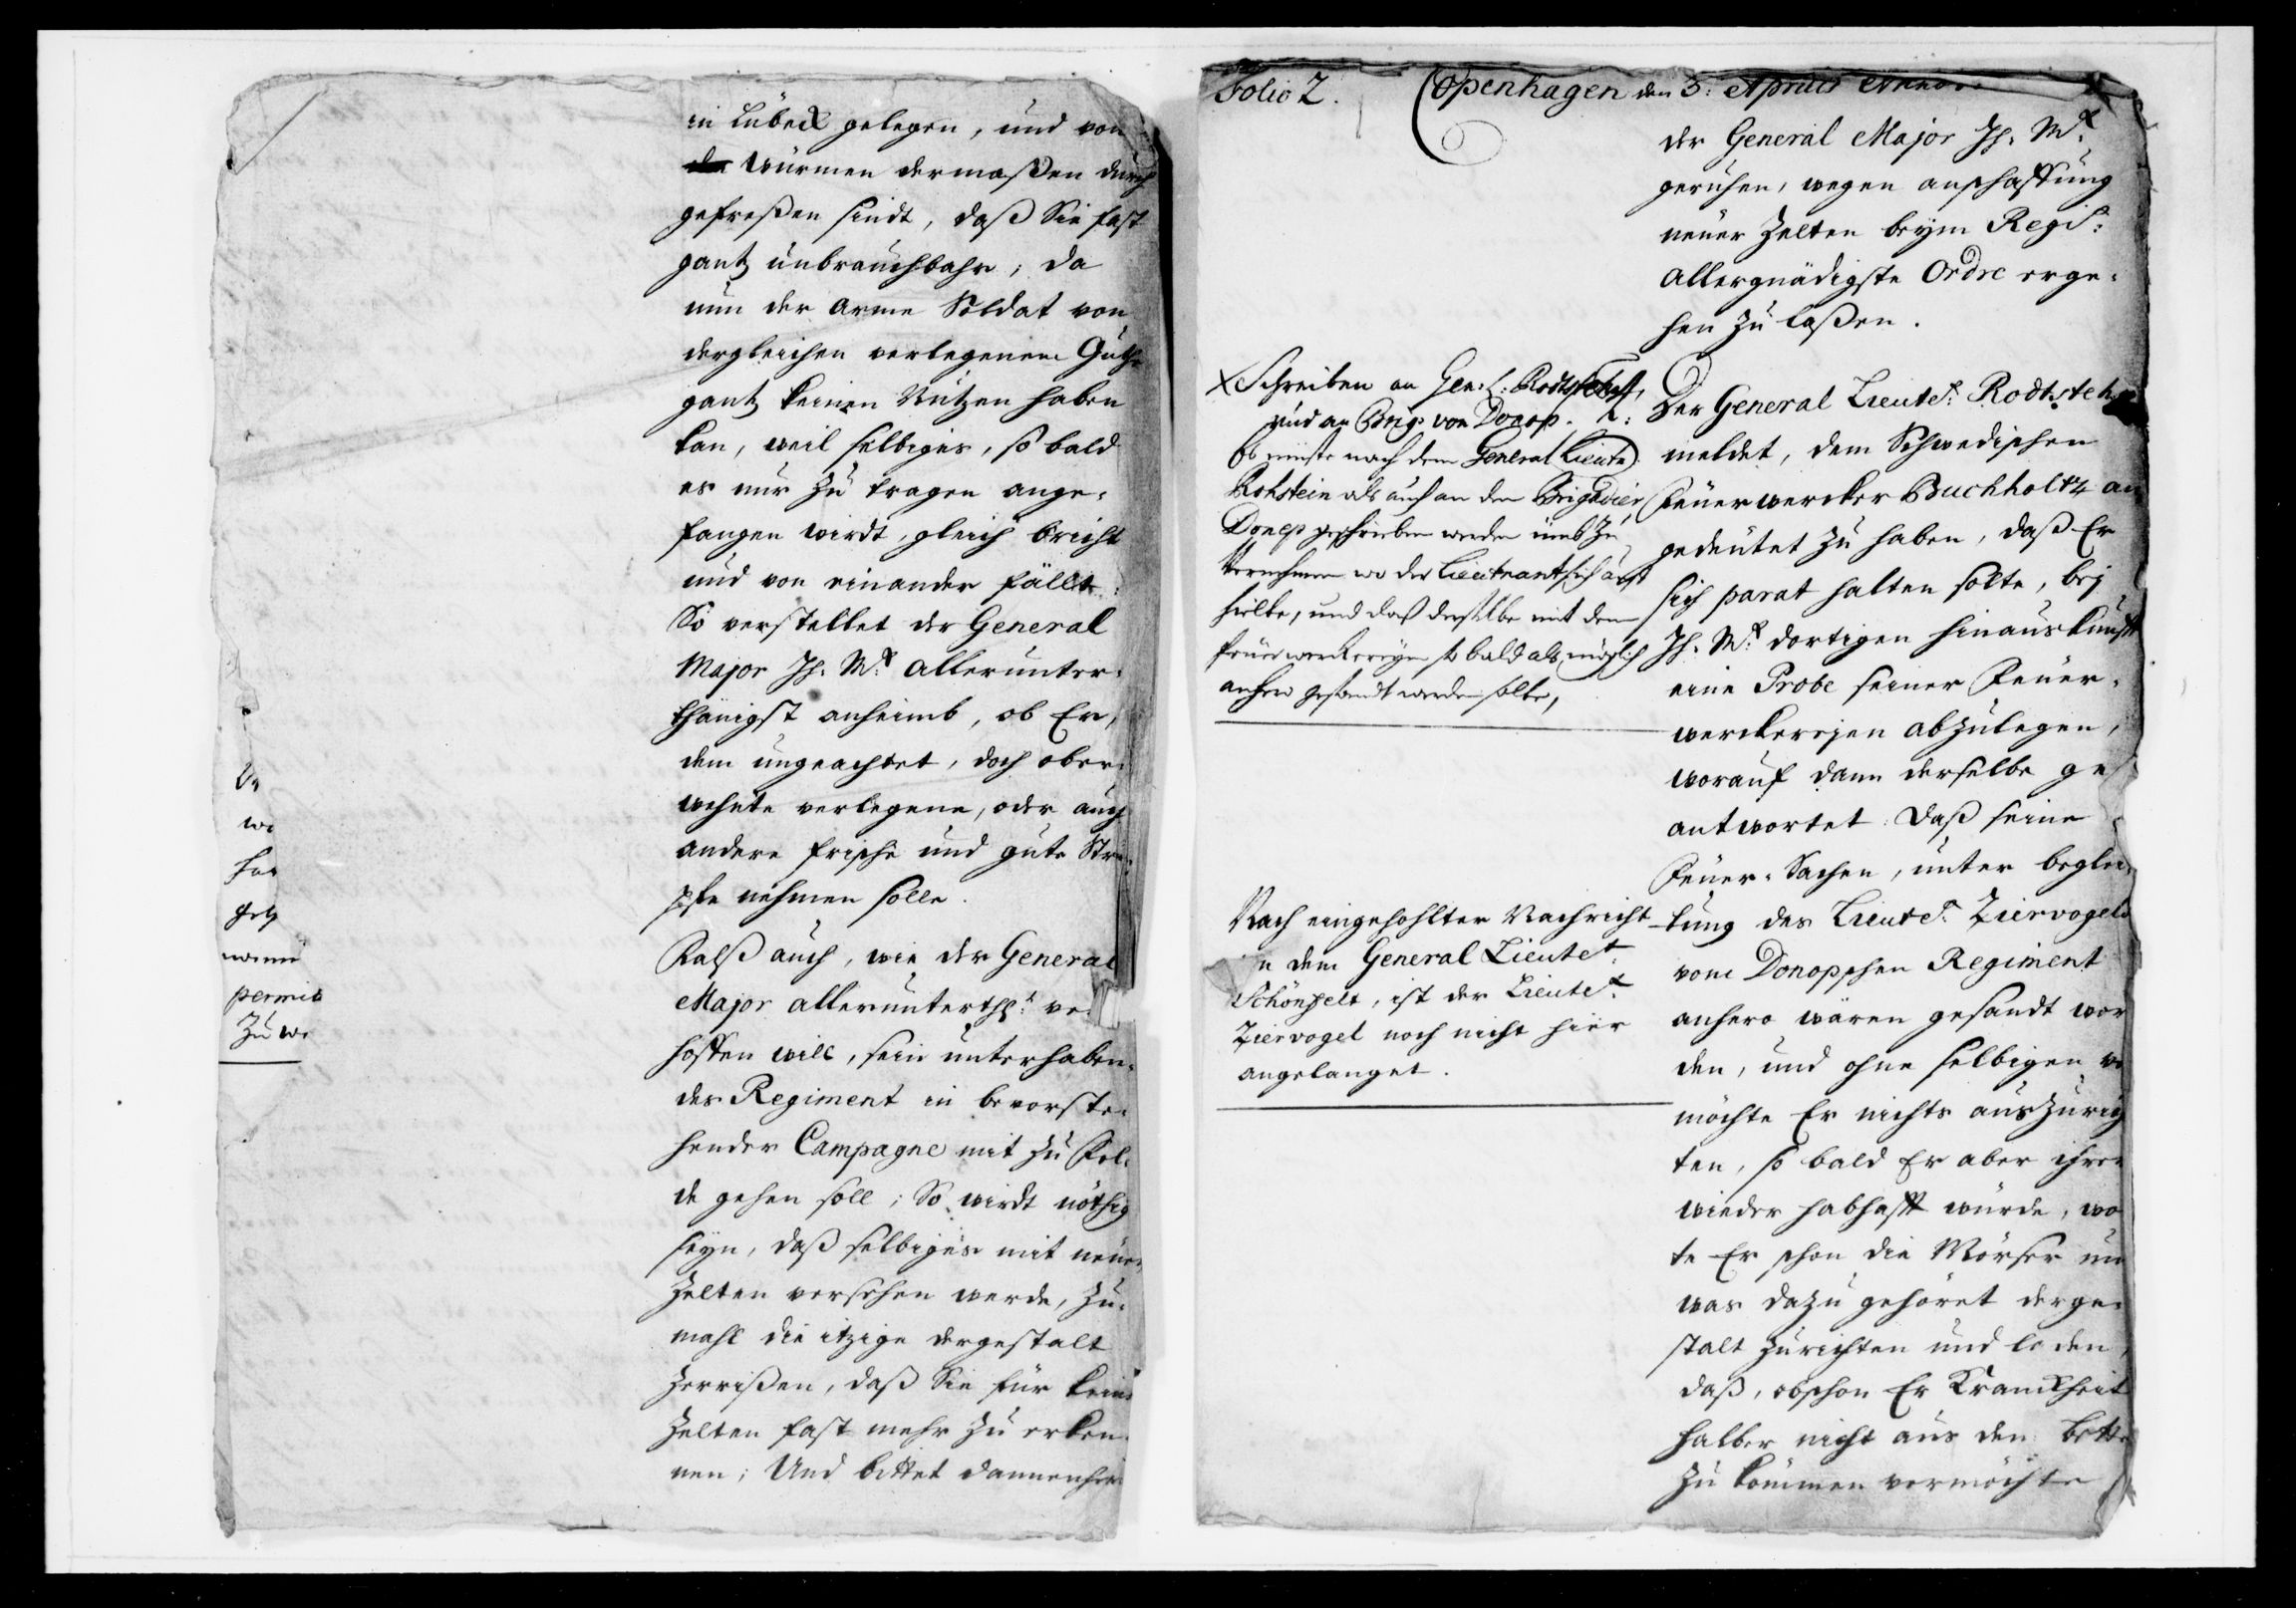 in Lübeck gelegen, und von
Würmen dermaßen durch
gefreßen sindt, daß Sie fast
gantz unbrauchbahr, da
nun der arme Soldat von
dergleichen verlegenem Guthe
gantz keinen Nutzen haben
kan, weil selbiges, so bald
es nur zu tragen ange¬
fangen wirdt, gleich bricht
und von einander fällt:
So verstellet der General
Major Ih. Mt. allerunter¬
thänigst anheimb, ob Er,
dem ungeachtet, doch ober¬
wehnte verlegene, oder auch
andere frische und gute Strü¬
pfe nehmen solle.
Falß auch, wie der General
Major allerunterthst. ver
hoffen will, sein unterhaben¬
des Regiment in bevorste¬
hender Campagne mit zu Fel¬
de gehen soll; So wirdt nöthig
seyn, daß selbiges mit neuen
Zelten versehen werde, zu¬
mahl die itzige dergestalt
zerrißen, daß Sie für keine
Zelten fast mehr zu erken¬
nen; Und bittet dannenhero
wo
permit
zu we
Folio 2. Copenhagen den 3: Aprilis Anno
der General Major Ih. Mt.
geruhen, wegen anschaffung
neuer Zelten beym Regt:
allergnädigste Ordre erge¬
hen zu laßen.
Schreiben an Gen: L:
und an Brig. von Donop.
Es müste nach dem General Lieute
Rohstein als auch an den Brigadier
Donep geschrieben werden umb zu
Vernehmen wo der Lieutnant sich auf
hielte, und daß derselbe mit dem
feuerwerckereyen so bald als möglich
anhero gesandt werden solte,
Der General Lieutet: Rodtsteh
meldet, dem Schwedischen
Feuerwercker Buchholtz an
gedeutet zu haben, daß Er
sich parat halten solte, bey
Ih. Mt. dortigen hinauskunft
eine Probe seiner Feuer¬
werckereyen abzulegen,
worauf dann derselbe ge
antwortet: Daß seine
Feuer-Sachen, unter beglei¬
tung des Lieutet: Ziervogels
vom Donopschen Regiment
anhero wären gesandt wor
den, und ohne selbigen
möchte Er nichts auszurich
ten, so bald Er aber ihrer
wieder habhafft würde, wo
te Er schon die Mörser un
was dazu gehöret derge¬
stalt zurichten und laden,
daß, obschon Er Kranckheit
halber nicht aus dem Bette
zu kommen vermöchte
Nach eingehohlter Nachricht
dem General Lieutet:
Schönfelt, ist der Lieutet:
Ziervogel noch nicht hier
angelanget.